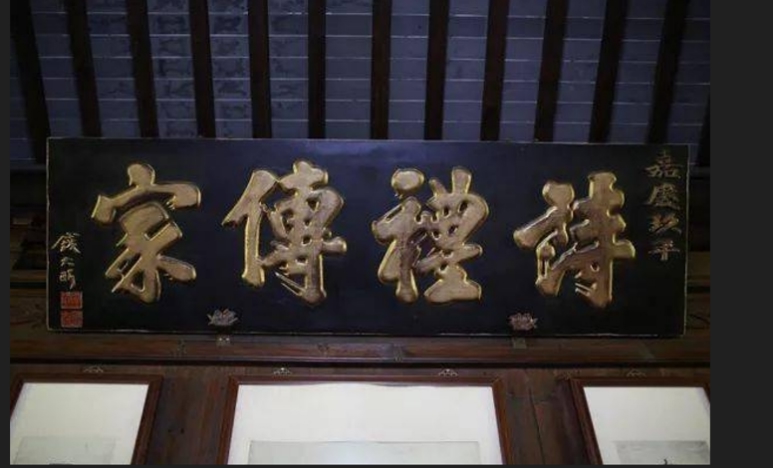 嘉慶玖年
詩禮傳家
錢大昕